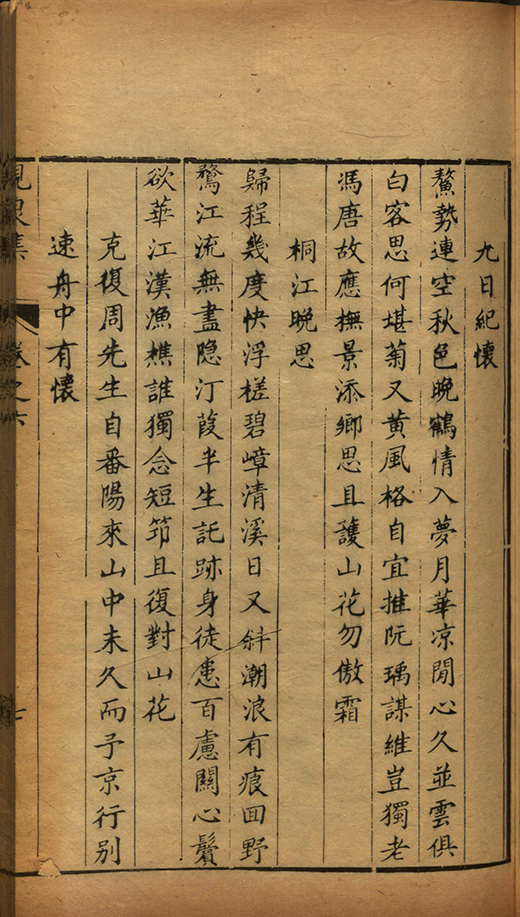 九日紀懷
鰲勢連空秋色晚鶴情入夢月華凉閒心久並雲俱
白客思何堪菊又黄風格自宜推阮瑀謀維豈獨老
馮唐故應橅景添鄉思且護山花勿傲霜
桐江晚思
歸程幾度快浮槎碧嶂清溪日又斜潮浪有痕囬野
鶩江流無盡隐汀葭半生託跡身徒患百慮關心鬢
欲華江漢漁樵誰獨念短笻且復對山花
克復周先生自番陽來山中未久而予京行别
速舟中有懷
集
卷之六
七